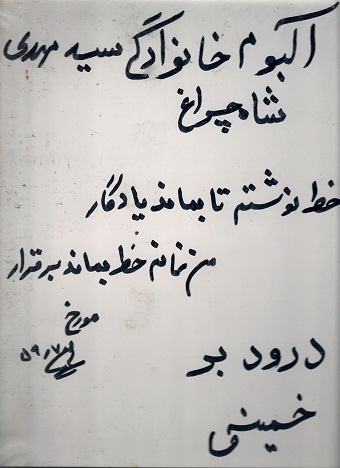 آلبوم خانوادگی سید مهدی
شاه چراغ
خط نوشتم تا بماند یادگار
من نمانم خط بماند برقرار
مورخ
۵۹/۷/
درود بر
خمینی